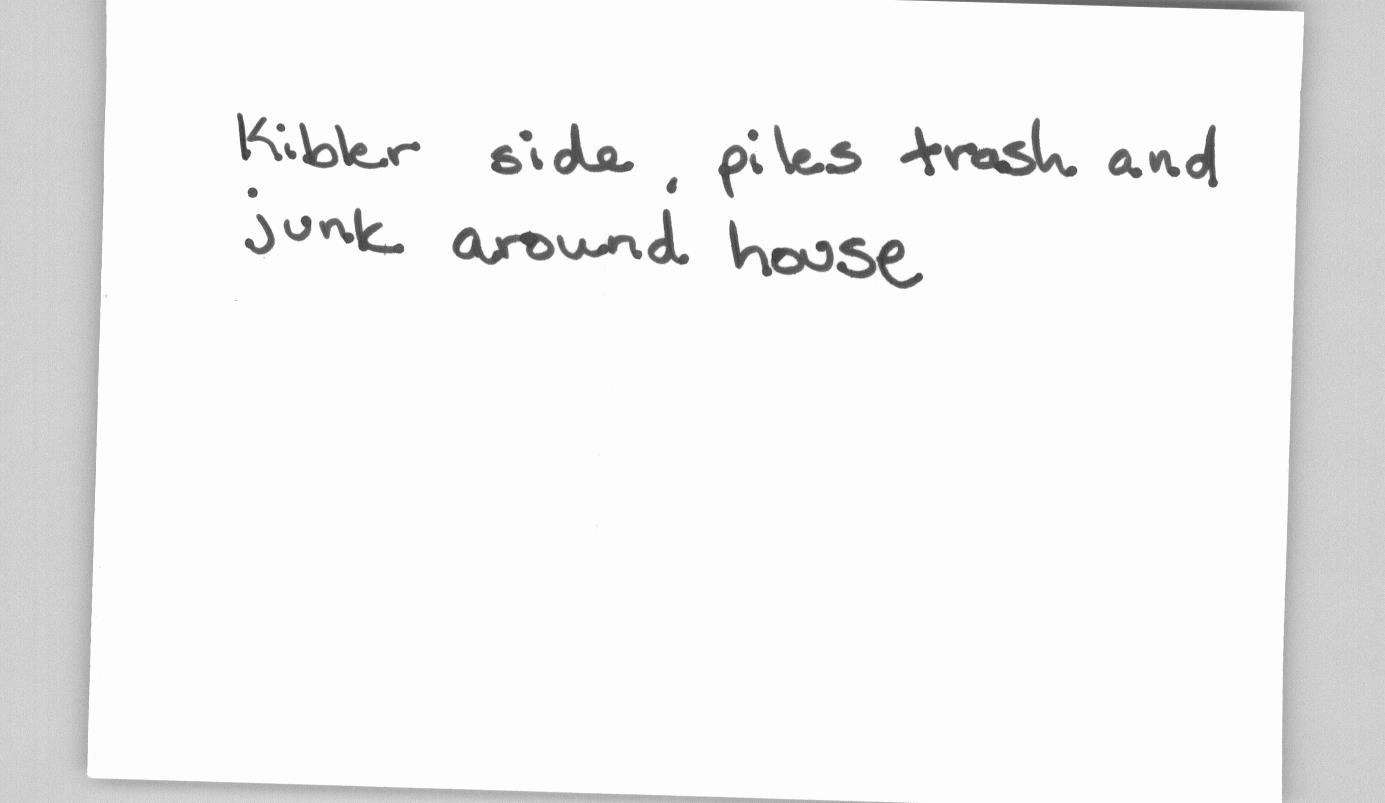 Kibler side, piles trash and
junk around house